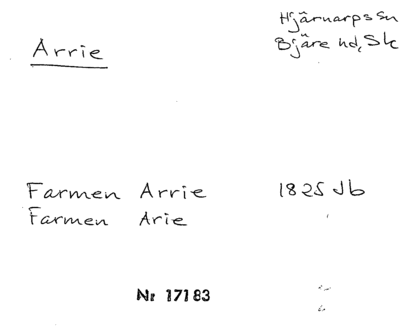 Hjärnarps sn
Arrie
Bjäre hd, Sk
Farmen Arrie 1825 Jb
Farmen Arie "
Nr 17183